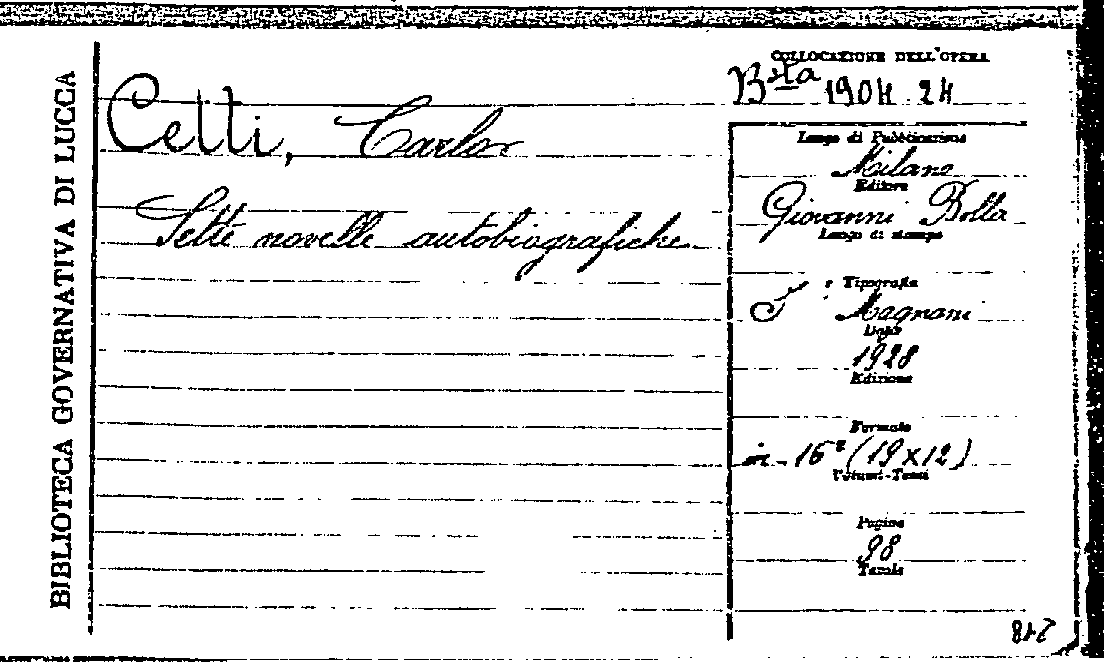 BIBLIOTECA GOVERNATIVA DI LUCCA
COLLOCAZIONE DELL'OPERA
Bsta 1904 24
Cetti, Carlo
Sette novelle autobiografiche
Luogo di Pubblicazione
Milano
Editore
Giovanni Bolla
Luogo di stampa
e Tipografia
F. Magnani
Data
1928
Edizione
Formato
in-16° (19x12)
Volumi-Tomi
Pagine
98
Tavole
218